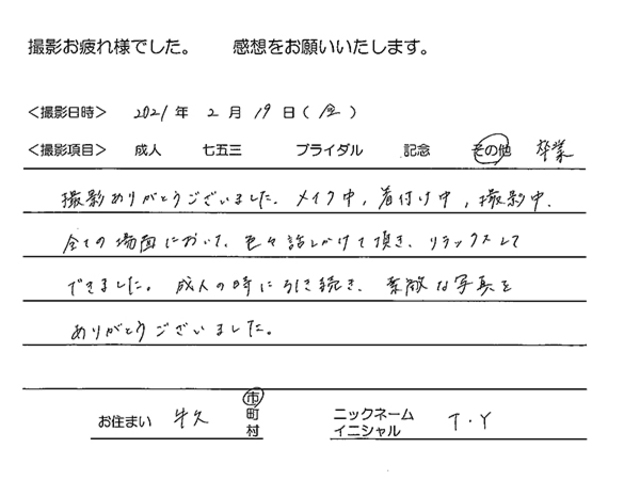 撮影お疲れ様でした。　感想をお願いいたします。
<撮影日時>　2021年2月19日(金)
<撮影項目>　成人　七五三　ブライダル　記念　その他　卒業
撮影ありがとうございました。メイク中,着付け中,撮影中.
全ての場面において、色々話しかけて頂き、リラックスして
できました。成人の時に引き続き、素敵な写真を
ありがとうございました。
お住まい　牛久　市町村
ニックネーム
イニシャル　T・Y